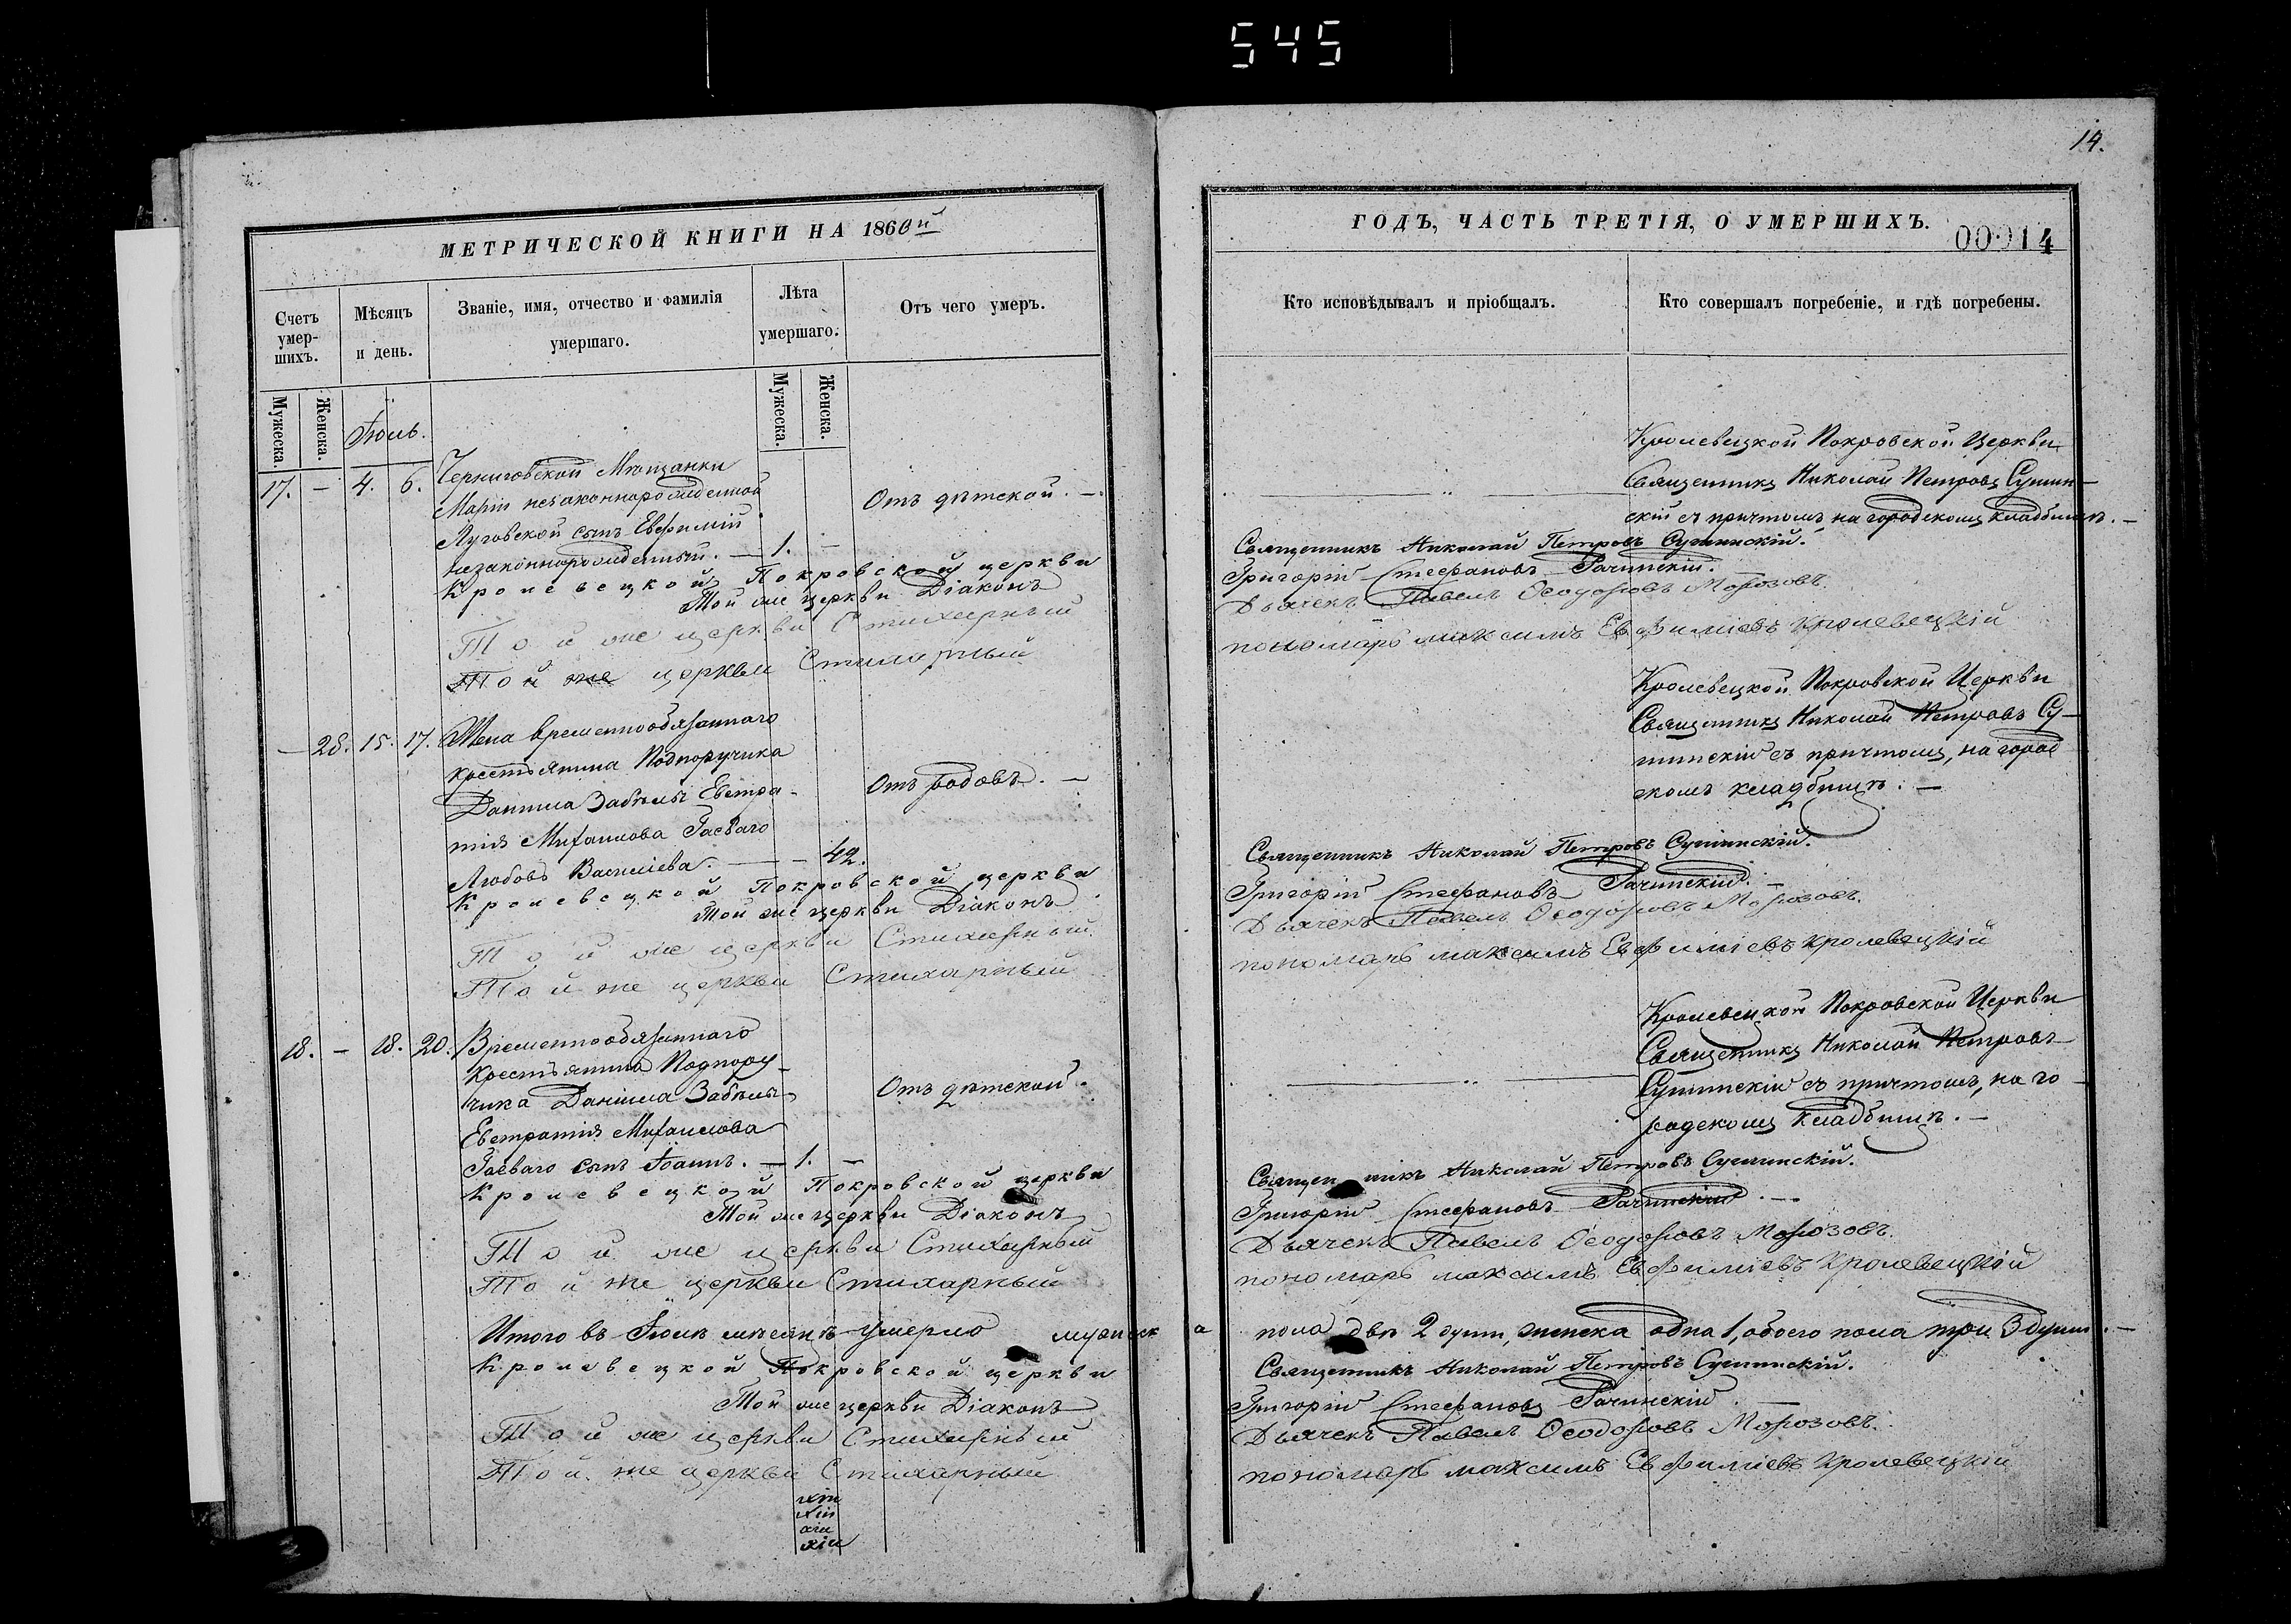 545
14.
МЕТРИЧЕСКОЙ КНИГИ НА 1866й
Счетъ умер-
шихъ.
Мѣсяцъ
и день.
Званіе, имя, отчество и фамилія
умершаго.
Лѣта
умершаго.
Отъ чего умеръ.
Мужеска.
Женска.
Мужеска.
Женска.
Іюль.
17. — 4. 6. Черниговской Мѣщанки
Маріи незаконнорожденной
Луговской сынъ Евфимій
незаконнорожденный. — 1. —
Отъ дѣтской. —
Кролевецкой Покровской церкви
Той же церкви Діаконъ
Той же церкви Стихарный
Той же церкви Стихарный
— 28. 15. 17. Жена временнообязаннаго
крестьянина Подпоручика
Даніила Забѣлы Евстра-
тія Михаилова Гаеваго
Любовь Василіева. — — 42.
Отъ родовъ. —
Кролевецкой Покровской церкви
Той же церкви Діаконъ
Той же церкви Стихарный
Той же церкви Стихарный
18. — 18. 20. Временнообязаннаго
крестьянина Подпору-
чика Даніила Забѣлы
Евстратія Михаилова
Гаеваго сынъ Іоаннъ. — 1. —
Отъ дѣтской.
Кролевецкой Покровской церкви
Той же церкви Діаконъ
Той же церкви Стихарный
Той же церкви Стихарный
Итого въ Іюлѣ мѣсяцѣ умерло мужеск
Кролевецкой Покровской церкви
Той же церкви Діаконъ
Той же церкви Стихарный
Той же церкви Стихарный
ГОДЪ, ЧАСТЬ ТРЕТІЯ, О УМЕРШИХЪ.
00014
Кто исповѣдывалъ и пріобщалъ.
Кто совершалъ погребеніе, и гдѣ погребены.
Кролевецкой Покровской Церкви
Священникъ Николай Петровъ Сушин-
скій съ причтомъ на городскомъ кладбищѣ. —
Священникъ Николай Петровъ Сушинскій.
Григорій Стефановъ Рачинскій.
Дьячекъ Павелъ Ѳеодоровъ Морозовъ.
пономарь максимъ Евфиміевъ кролевецкій
Кролевецкой Покровской Церкви
Священникъ Николай Петровъ Су-
шинскій съ причтомъ, на город
скомъ кладбищѣ. —
Священникъ Николай Петровъ Сушинскій.
Григорій Стефановъ Рачинскій. —
Дьячекъ Павелъ Ѳеодоровъ Морозовъ.
пономарь максимъ Евфиміевъ кролевецкій
Кролевецкой Покровской Церкви
Священникъ Николай Петровъ
Сушинскій съ причтомъ, на го-
родскомъ кладбищѣ. —
Священникъ Николай Петровъ Сушинскій.
Григорій Стефановъ Рачинскій. —
Дьячекъ Павелъ Ѳеодоровъ Морозовъ.
пономарь максимъ Евфиміевъ кролевецкій
а пола двѣ 2 души, женска одна 1, обоего пола три 3 души. —
Священникъ Николай Петровъ Сушинскій.
Григорій Стефановъ Рачинскій. —
Дьячекъ Павелъ Ѳеодоровъ Морозовъ.
пономарь максимъ Евфиміевъ кролевецкій